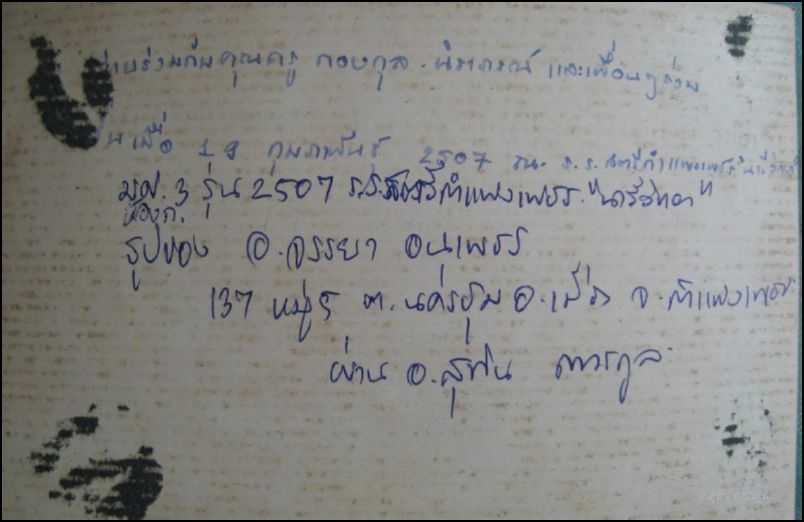 ถ่ายร่วมกับคุณครู กองกุล นิราภรณ์ และเพื่อนๆร่วม
เมื่อ 19 กุมภาพันธ์ 2507 ณ. ร.ร.สตรีกำแพงเพชร
มศ. 3 รุ่น 2507 ร.ร.สตรีกำแพงเพชร "นารีวิทยา"
ห้องก.
รูปของ อ.จรรยา อนุเพชร
137 หมู่5 ต.นครชุม อ.เมือง จ.กำแพงเพชร
ผ่าน อ.สุฑิน